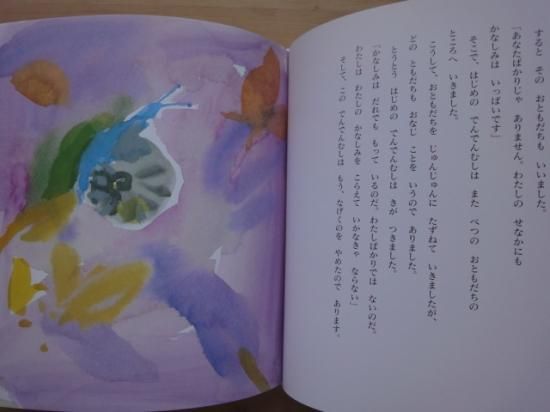 すると その おともだちも いいました。
「あなたばかりじゃ ありません。わたしの せなかにも
かなしみは いっぱいです」
そこで、はじめの でんでんむしは また べつの おともだちの
ところへ いきました。
こうして、おともだちを じゅんじゅんに たずねて いきましたが、
どの ともだちも おなじ ことを いうので ありました。
とうとう はじめの でんでんむしは きが つきました。
「かなしみは だれでも もって いるのだ。わたしばかりでは ないのだ。
わたしは わたしの かなしみを こらえて いかなきゃ ならない」
そして、この でんでんむしは もう、なげくのを やめたので あります。